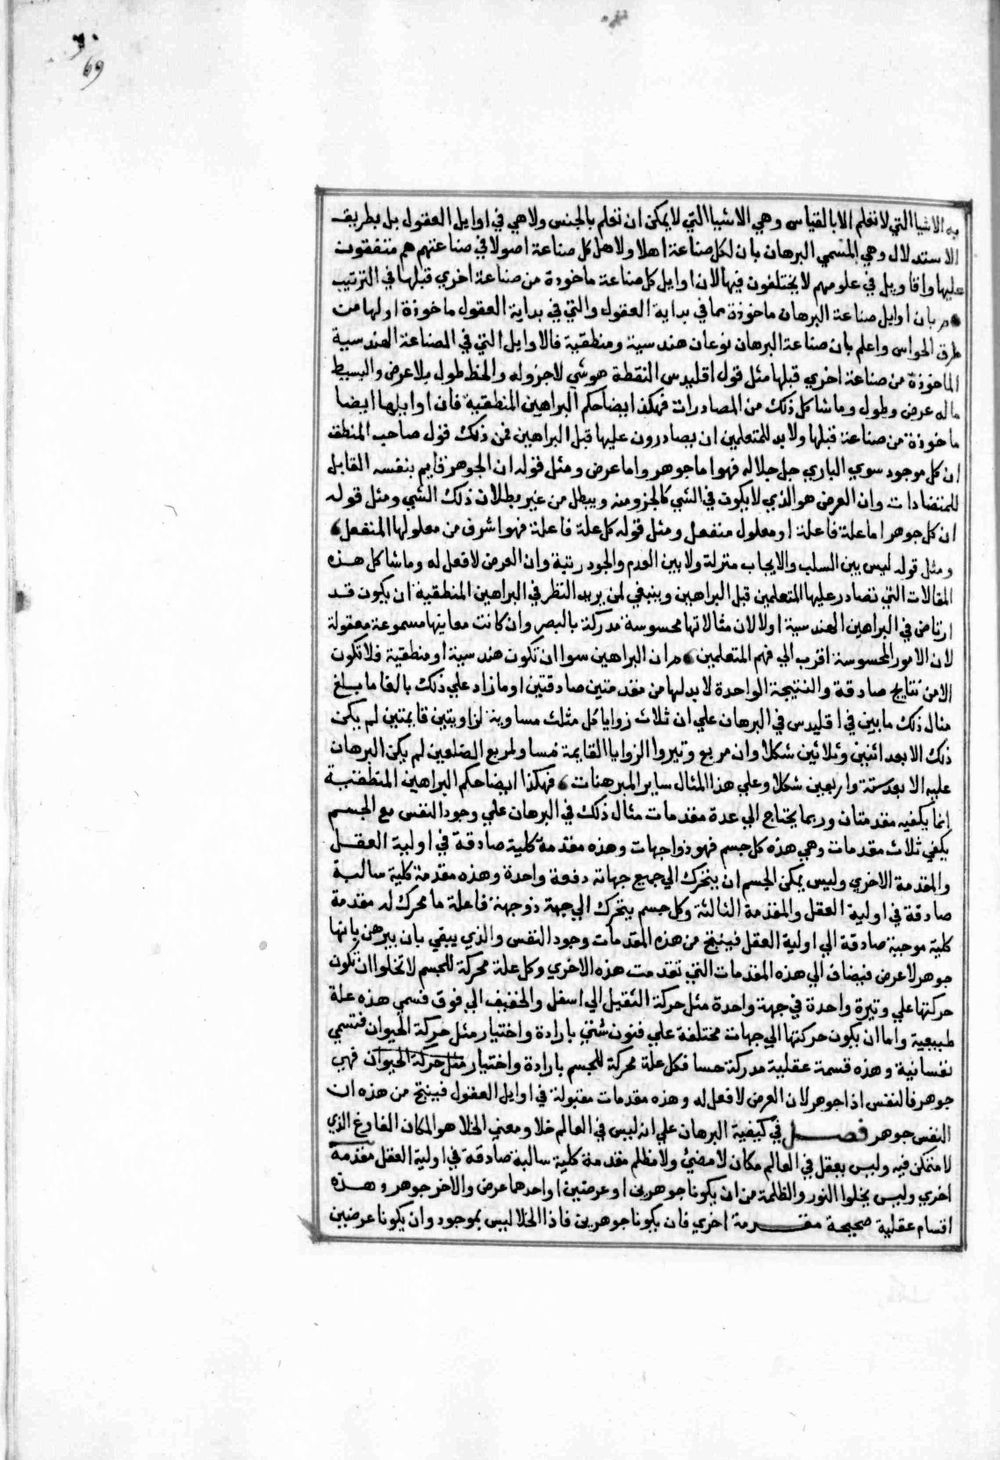 69
به الاشيا التي لا تعلم الا بالقياس وهي الاشيا التي لا يمكن ان تعلم بالجنس ولا هي في اوايل العقول بل بطريق
الاستدلال وهي المسمي البرهان بان لكل صناعة اهلا ولاهل كل صناعة اصولا في صناعتهم هم متفقون
عليها واقاويل في علومهم لا يختلفون فيها لان اوايل كل صناعة ماخوذة من صناعة اخري قبلها في الترتيب
بان اوايل صناعة البرهان ماخوذة مما في بداية العقول والتي في بداية العقول ماخوذة اولها من
طرق الحواس واعلم بان صناعة البرهان نوعان هندسية ومنطقية فالاوايل التي في الصناعة الهندسية
الماخوذة من صناعة اخري قبلها مثل قول اقليدس النقطة هو شي لا جزو له والخط طول بلا عرض والبسيط
ما له عرض وطول وما شاكل ذلك من المصادرات فهكذا ايضا حكم البراهين المنطقية فان اوايلها ايضا
ماخوذة من صناعة قبلها ولا بد للمتعلمين ان يصادرون عليها قبل البراهين فمن ذلك قول صاحب المنطق
ان كل موجود سوي الباري جل جلاله فهو اما جوهر واما عرض ومثل قوله ان الجوهر قايم بنفسه القابل
للمتضادات وان العرض هو الذي لا يكون في الشي كالجزو منه ويبطل من غير بطلان ذلك الشي ومثل قوله
ان كل جوهر اما علة فاعلة او معلول منفعل ومثل قوله كل علة فاعلة فهو اشرف من معلولها المنفعل
ومثل قوله ليس بين السلب والايجاب منزلة ولا بين العدم والوجود رتبة وان العرض لا فعل له وما شاكل هذه
المقالات التي تصادر عليها المتعلمين قبل البراهين وينبغي لمن يريد النظر في البراهين المنطقية ان يكون قد
ارتاض في البراهين الهندسية اولا لان مثالاتها محسوسة مدركة بالبصر وان كانت معاينها مسموعة معقولة
لان الامور المحسوسة اقرب الي فهم المتعلمين ان البراهين سوا ان تكون هندسية او منطقية فلا تكون
الا من نتايج صادقة والنتيجة الواحدة لا بد لها من مقدمتين صادقتين او ما زاد علي ذلك بالغا ما بلغ
مثال ذلك ما بين في اقليدس في البرهان علي ان ثلاث زوايا كل مثلث مساوية لزاويتين قايمتين لم يكن
ذلك الا بعد اثنين وثلاثين شكلا وان مربع وتيروا الزوايا القايمة مساو لمربع الضلعين لم يكن البرهان
عليه الا بعد ستة واربعين شكلا وعلي هذا المثال ساير المبرهنات فهكذا ايضا حكم البراهين المنطقية
انما يكفيه مقدمتان وربما يحتاج الي عدة مقدمات مثال ذلك في البرهان علي وجود النفس مع الجسم
يكفي ثلاث مقدمات وهي هذه كل جسم فهو ذو اجهات وهذه مقدمة كلية صادقة في اولية العقل
والمقدمة الاخري وليس يمكن الجسم ان يتحرك الي جميع جهاته دفعة واحدة وهذه مقدمة كلية سالبة
صادقة في اولية العقل والمقدمة الثالثة وكل جسم يتحرك الي جهة ذو جهة فاعلة ما محرك له مقدمة
كلية موجبة صادقة الي اولية العقل فينتج من هذه المقدمات وجود النفس والذي يبقي بان يبرهن بانها
جوهر لا عرض فيضاف الي هذه المقدمات التي تقدمت هذه الاخري وكل علة محركة للجسم لا تخلوا ان تكون
حركتها علي وتيرة واحدة في جهة واحدة مثل حركة الثقيل الي اسفل والخفيف الي فوق فسمي هذه علة
طبيعية واما ان يكون حركتها الي جهات مختلفة علي فنون شتي بارادة واختيار مثل حركة الحيوان فتسمي
نفسانية وهذه قسمة عقلية مدركة حسا فكل علة محركة للجسم بارادة واختيار مثل حركة الحيوان فهي
جوهر فالنفس اذا جوهر لان العرض لا فعل له وهذه مقدمات مقبولة في اوايل العقول فينتج من هذه ان
النفس جوهر فصل في كيفية البرهان علي انه ليس في العالم خلا ومعني الخلا هو المكان الفارغ الذي
لا متمكن فيه وليس بعقل في العالم مكان لا مضيء ولا مظلم مقدمة كلية سالبة صادقة في اولية العقل مقدمة
اخري وليس يخلوا النور والظلمة من ان يكونا جوهرين او عرضين او احدهما عرض والاخر جوهر وهذه
اقسام عقلية صحيحة مقدمة اخري فان يكونا جوهرين فاذا الخلا ليس بموجود وان يكونا عرضين